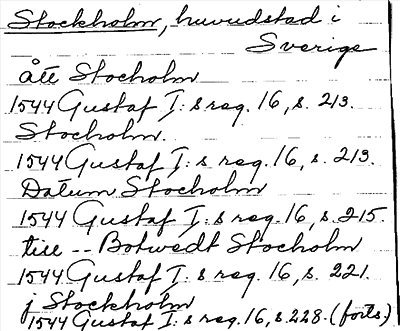 Stockholm, huvudstad i
Sverige
ått Stocholm
1544 Gustaf I:s reg. 16, s. 213.
Stocholm.
1544 Gustaf I:s reg. 16, s. 213.
Datum Stocholm
1544 Gustaf I:s reg. 16, s. 215.
till -- Botwedt Stocholm
1544 Gustaf I:s reg. 16, s. 221.
j Stockholm
1544 Gustaf I:s reg. 16, s. 228. (forts.)